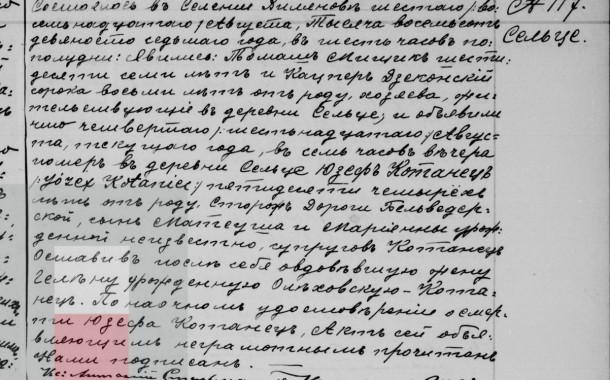 Состоялось въ Селеніи Лименовъ шестаго/во-
семьнадцатаго/Августа, Тысяча восемьсотъ
девяносто седьмаго года, въ шесть часовъ по-
полудни: Явились: Томашъ шести-
десяти семи лѣтъ и Кацперъ Дзеконскій
сорока восьми лѣтъ отъ роду, хозяева, жи-
тельствующіе въ деревни Сельце; и объявили
что четвертаго/шестьнадцатаго/Авгус-
та, текущаго года, въ семь часовъ вечера
померъ въ деревни Сельце Юзефъ Котанецъ
/Józef Kotaniec/ пятидесяти четырехъ
лѣтъ отъ роду, Сторожъ Дороги Бельведер-
ской, сынъ Матеуша и Маріянны урож-
денной неизвестно, супруговъ Котанецъ
Оставивъ послѣ себя овдовѣвшую жену
Гелену урожденную Ольховскую-Кота-
нецъ. По наочномъ удостовѣреніи о смер-
ти Юзефа Котанецъ, Актъ сей объя-
вляющимъ неграмотнымъ прочитанъ
Нами подписанъ.
Кс: Антоній
№ 117.
Сельце.